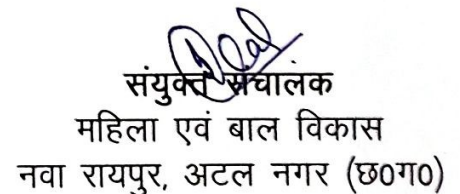 संयुक्त संचालक
महिला एवं बाल विकास
नवा रायपुर, अटल नगर (छ0ग0)